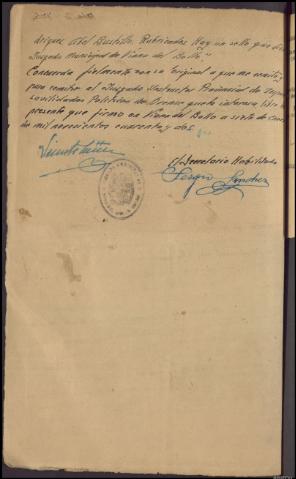 driguez Abel Bustillo. Rubricados Hay un sello que dice
Juzgado Municipal de Viana del Bollo."
Concuerda fielmente con su original a que me remito y
para remitir al Juzgado Instructor Provincial de Respon
sabilidades Politicas de Orense que lo interesa libro el
presente que firmo en Viana del Bollo a siete de
de mil novecientos cuarenta y dos.
El Secretario Habilitado
Sergio Sanchez